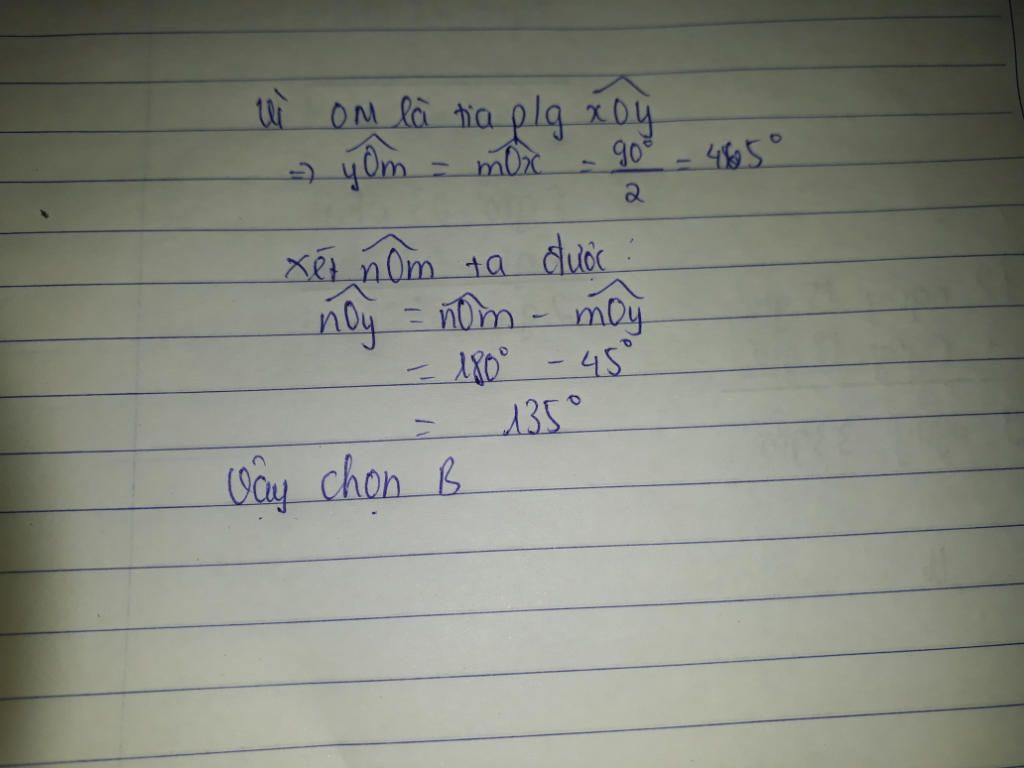 Vì OM là tia p/g xOy
=> yOm = mOx = 90°/2 = 45°
xét nOm ta được :
nOy = nOm - mOy
= 180° - 45°
= 135°
Vậy chọn B